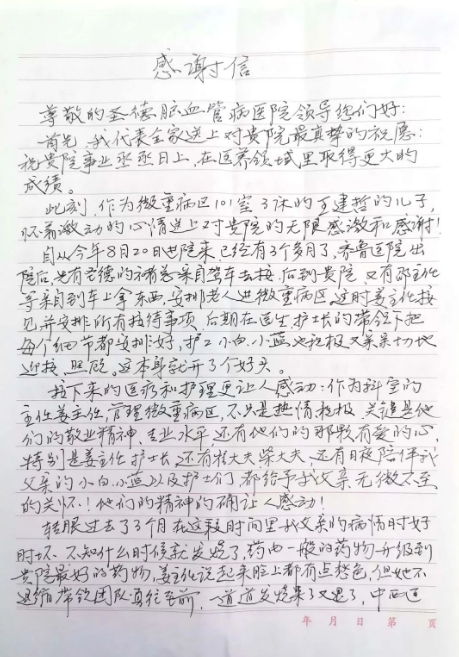 感谢信
尊敬的圣德脑血管病医院领导您们好:
首先,我代表全家送上对贵院最真挚的祝愿:
祝贵院事业蒸蒸日上,在医养领域里取得更大的
成绩。
此刻,作为微重病区101室3床的王建哲的儿子,
怀着激动的心情送上对贵院的无限感激和感谢!
自从今年8月20日出院来,已经有3个多月了,齐鲁医院出
院后,先有圣德的褚总亲自驾车去接,后到贵院,又有主任
等亲自到车上拿东西,安排老人进微重病区,这时姜主任接
见并安排所有接待事项,后期在医生护士长的带领下把
每个细节都安排好,护工小白、小蓝也积极又亲亲切地
迎接、照顾,这本身就开了个好头。
接下来的医疗和护理更让人感动:作为科室的
主任姜主任,管理微重病区,不只是热情积极,关键是他
们的敬业精神,专业水平还有他们的那颗有爱的心,
特别是姜主任、护士长,还有大夫柴大夫,还有日夜陪伴我
父亲的小白、小蓝以及护士们都给予我父亲无微不至
的关怀!他们的精神的确让人感动!
转眼过去了3个月在这段时间里我父亲的病情时好
时坏,不知什么时候就发烧了,药由一般的药物升级到
贵院最好的药物,姜主任说起来脸上都有点愁色,但她不
退缩带领团队勇往直前,一道道发烧来了又退了,中西
年 月 日 第 页